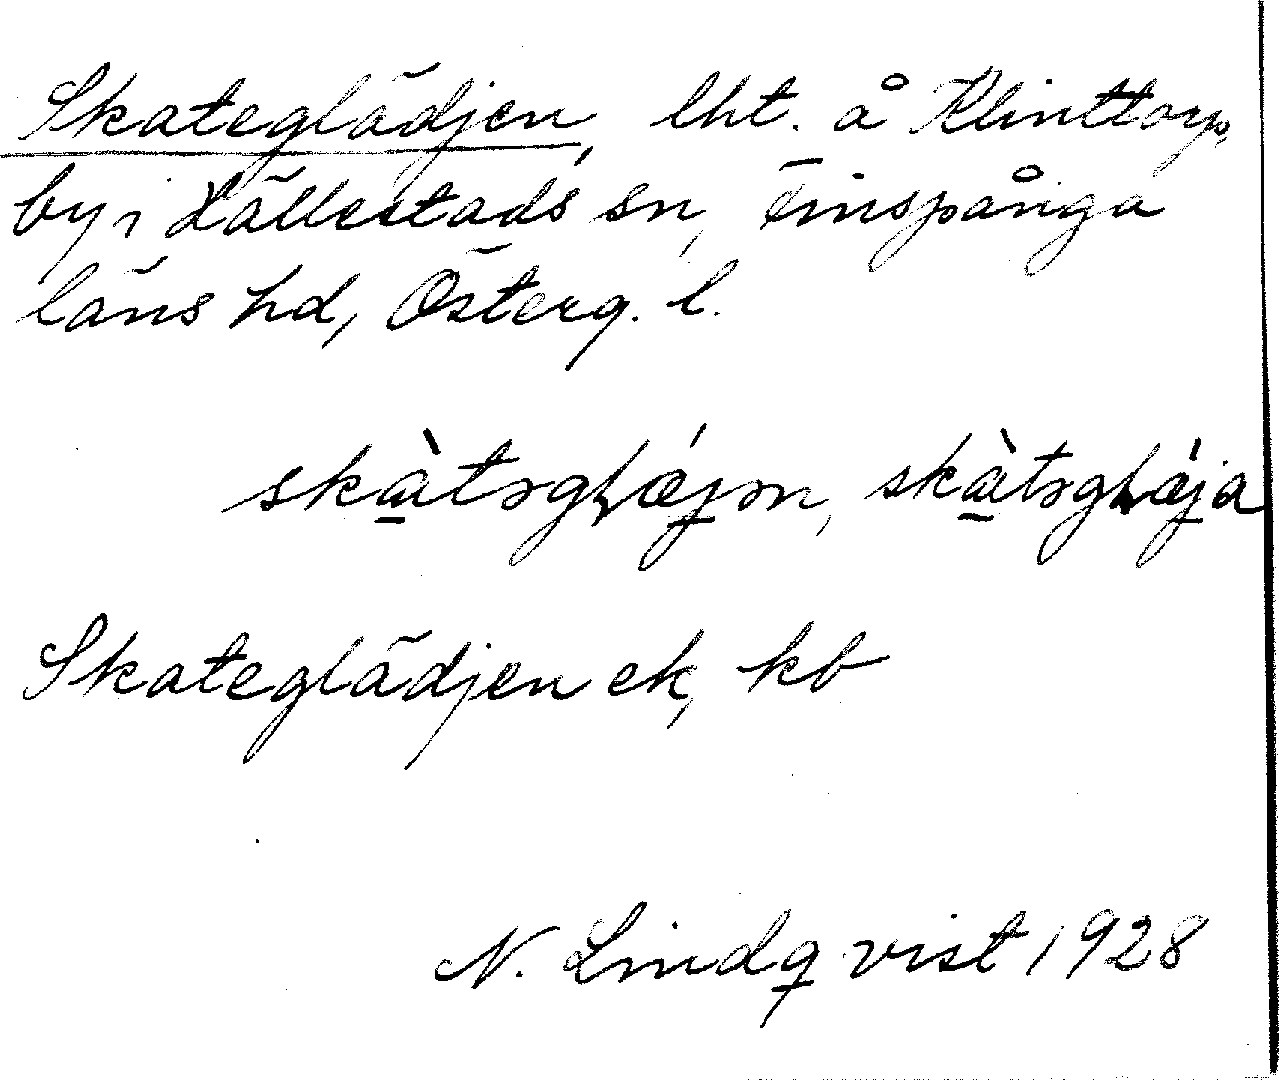 Skateglädjen, lht. å Klinttorp,
by i Hällestads sn, Finspånga
läns hd, Österg. l.
skà̱təgɫǽjən, skà̱təgɫǽja
Skateglädjen ek, kb
N. Lindqvist 1928